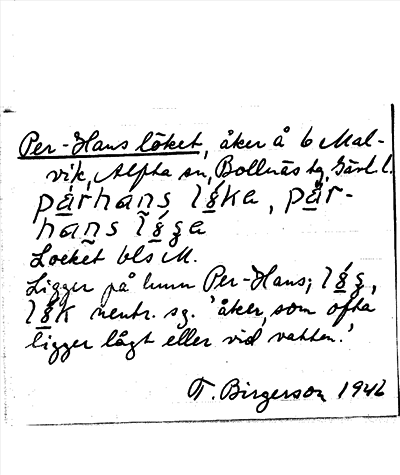 Per-Hans löket, åker å b Mal-
vik, Alfta sn, Bollnäs tg, Gävl. l.
pärhans löka, pär-
hans löga
Locket bls M.
Ligger på hmn Per-Hans; lög,
lök neutr. sg. 'åker, som ofta
ligger lågt eller vid vatten.'
T. Birgerson 1946